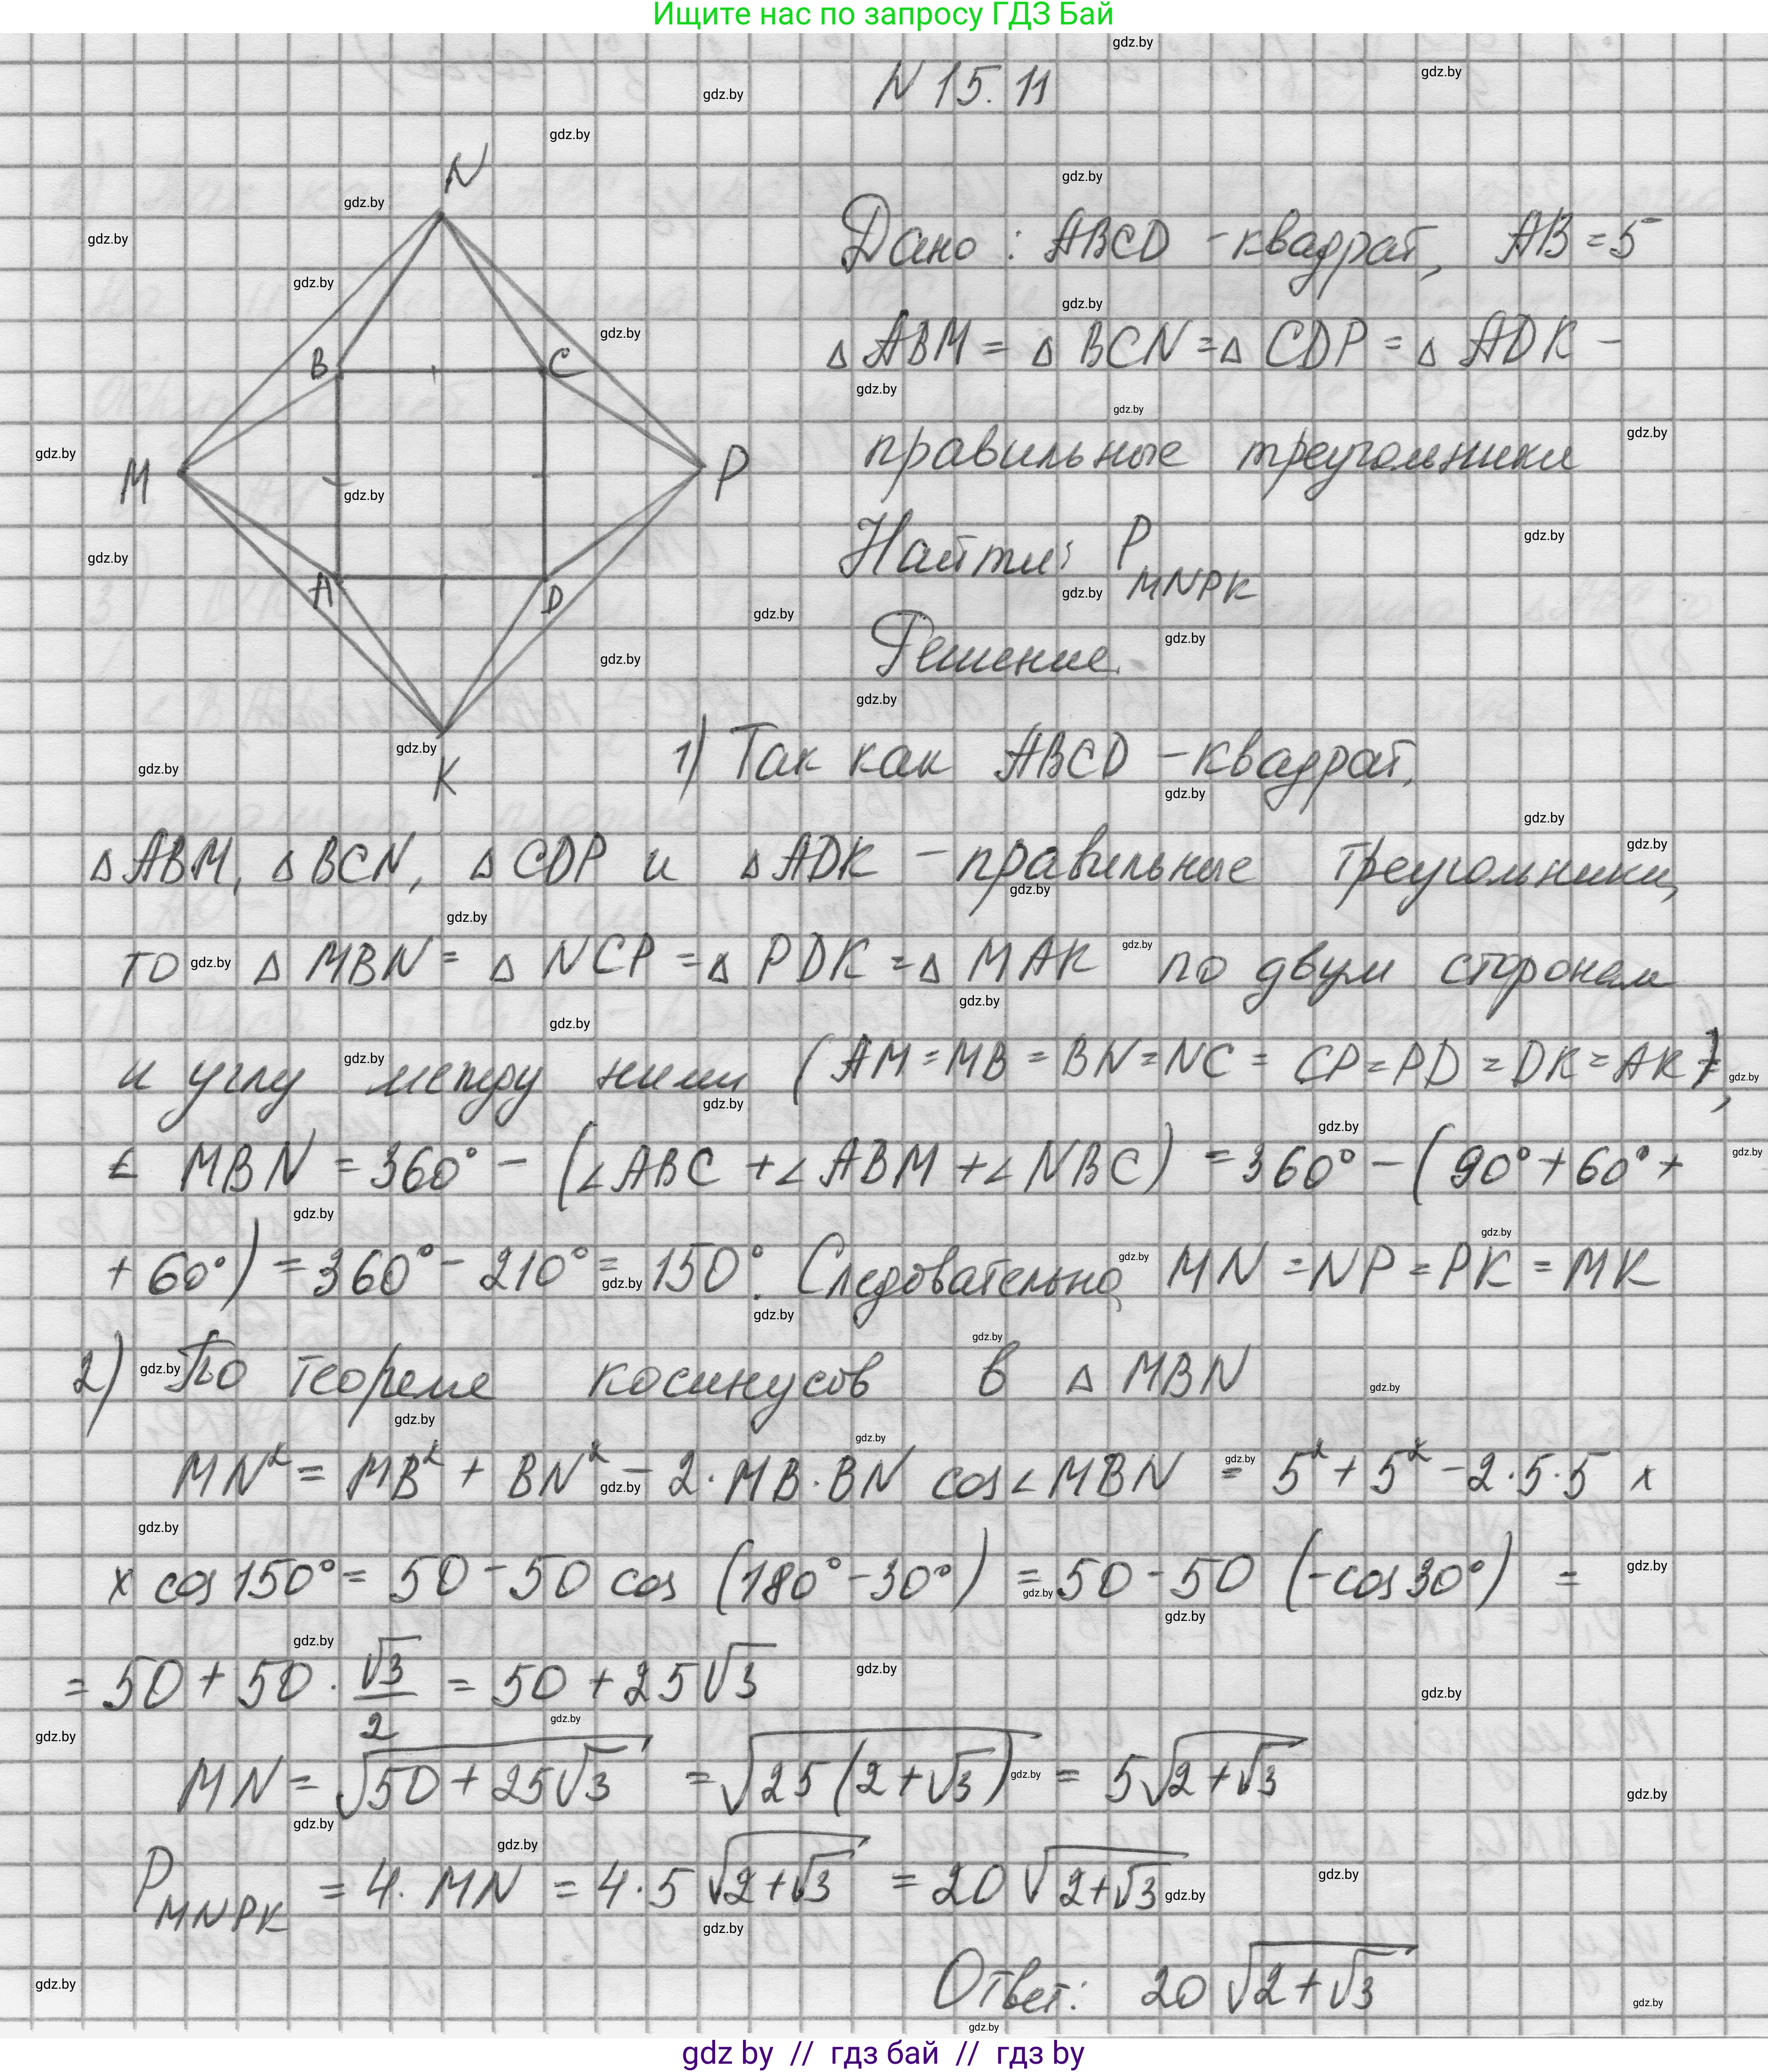 Ищите нас по запросу ГДЗ Бай
N 15.11
N
B
C
M
P
A
D
K
Дано: ABCD - квадрат, AB = 5
△ ABM = △ BCN = △ CDP = △ ADK -
правильные треугольники
Найти: P MNPK
Решение.
1) Так как ABCD - квадрат,
△ABM, △BCN, △CDP и △ADK - правильные треугольники,
то △ MBN = △ NCP = △ PDK = △ MAK по двум сторонам
и углу между ними (AM = MB = BN = NC = CP = PD = DK = AK),
∠ MBN = 360° - (∠ABC + ∠ABM + ∠NBC) = 360° - (90° + 60° +
+ 60°) = 360° - 210° = 150°. Следовательно, MN = NP = PK = MK
2) По теореме косинусов в △ MBN
MN² = MB² + BN² - 2·MB·BN cos∠MBN = 5² + 5² - 2·5·5 x
x cos 150° = 50 - 50 cos (180° - 30°) = 50 - 50 (-cos 30°) =
= 50 + 50 · √3/2 = 50 + 25√3
MN = √(50 + 25√3) = √(25(2+√3)) = 5√(2+√3)
P MNPK = 4·MN = 4·5√(2+√3) = 20√(2+√3)
Ответ: 20√(2+√3)
gdz by // гдз бай // гдз by